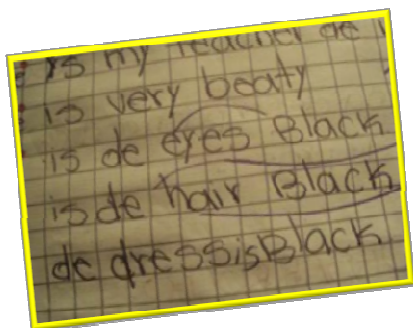 is my teacher de
is very beaty
is de eyes Black
is de hair Black
de dress is Black